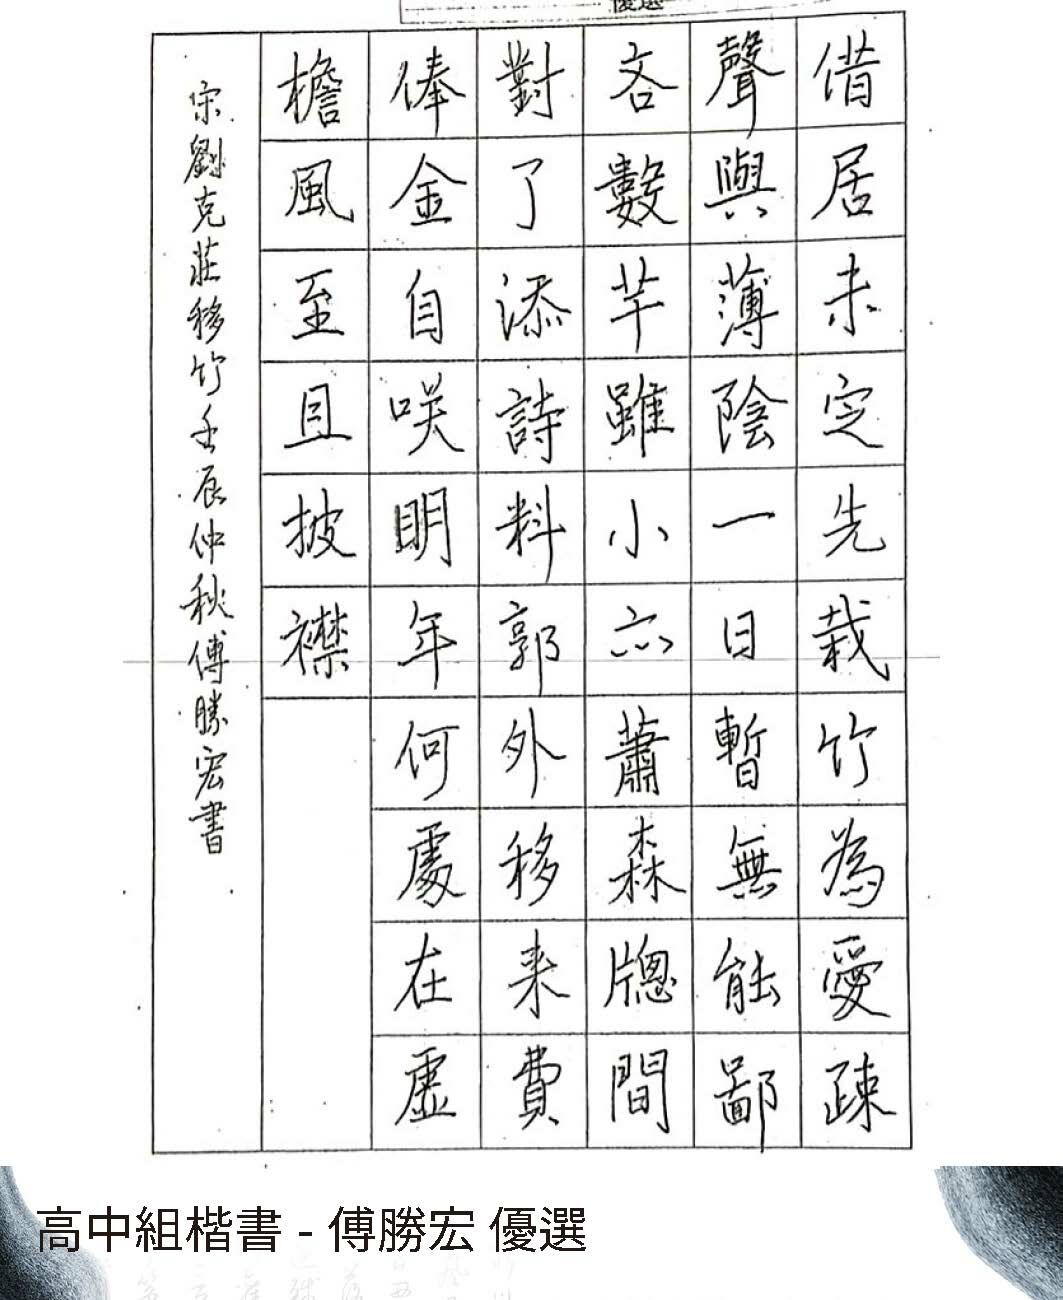 優選
借居未定先栽竹為愛疎
聲與薄陰一日暫無能鄙
吝數芉雖小亦蕭森牕間
對了添詩料郭外移来費
俸金自咲明年何處在虛
檐風至且披襟
宋劉克莊移竹壬辰仲秋傅勝宏書
高中組楷書 - 傅勝宏 優選